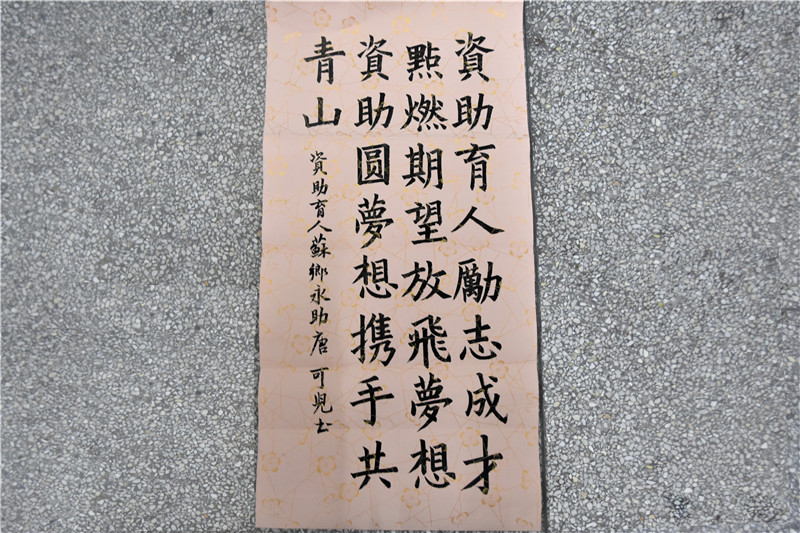 資助育人勵志成才
點燃期望放飛夢想
資助圆夢想携手共
青山
資助育人蘇鄉永助唐可児书